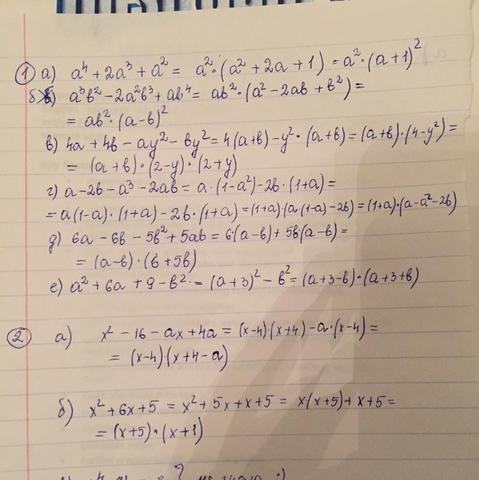 ① а) a⁴ + 2a³ + a² = a²·(a² + 2a + 1) = a²·(a+1)²
б) a³b² - 2a²b³ + ab⁴ = ab²·(a² - 2ab + b²) =
= ab²·(a-b)²
в) 4a + 4b - ay² - by² = 4(a+b) - y²·(a+b) = (a+b)·(4-y²) =
= (a+b)·(2-y)·(2+y)
г) a - 2b - a³ - 2ab = a·(1-a²) - 2b·(1+a) =
= a(1-a)·(1+a) - 2b·(1+a) = (1+a)·(a·(1-a) - 2b) = (1+a)·(a-a²-2b)
д) 6a - 6b - 5b² + 5ab = 6·(a-b) + 5b(a-b) =
= (a-b)·(6+5b)
е) a² + 6a + 9 - b² = (a+3)² - b² = (a+3-b)·(a+3+b)
② а) x² - 16 - ax + 4a = (x-4)·(x+4) - a·(x-4) =
= (x-4)·(x+4-a)
б) x² + 6x + 5 = x² + 5x + x + 5 = x(x+5) + x + 5 =
= (x+5)·(x+1)